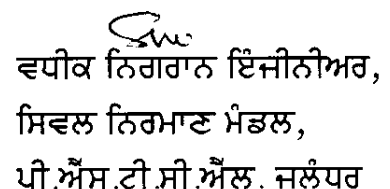 ਵਧੀਕ ਨਿਗਰਾਨ ਇੰਜੀਨੀਅਰ,
ਸਿਵਲ ਨਿਰਮਾਣ ਮੰਡਲ,
ਪੀ.ਐੱਸ.ਟੀ.ਸੀ.ਐੱਲ. ਜਲੰਧਰ